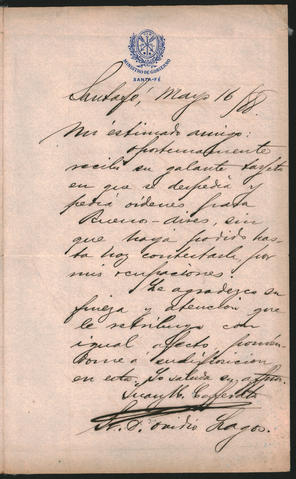 MINISTRO DE GOBIERNO
SANTA-FÉ
Santafé, Mayo 16/88.
Mi estimado amigo:
Oportunamente
recibí su galante tarjeta
en que se despedia y
pedia ordenes para
Bueno-Aires, sin
que haya podido has-
ta hoy contestarla, por
mis ocupaciones.
Le agradezco su
fineza y atencion que
le retribuyo con
igual afecto, ponien-
dome a su disposicion
en esta. Lo saluda su affmo.
Juan M. Cafferata
Sr. D. Ovidio Lagos.